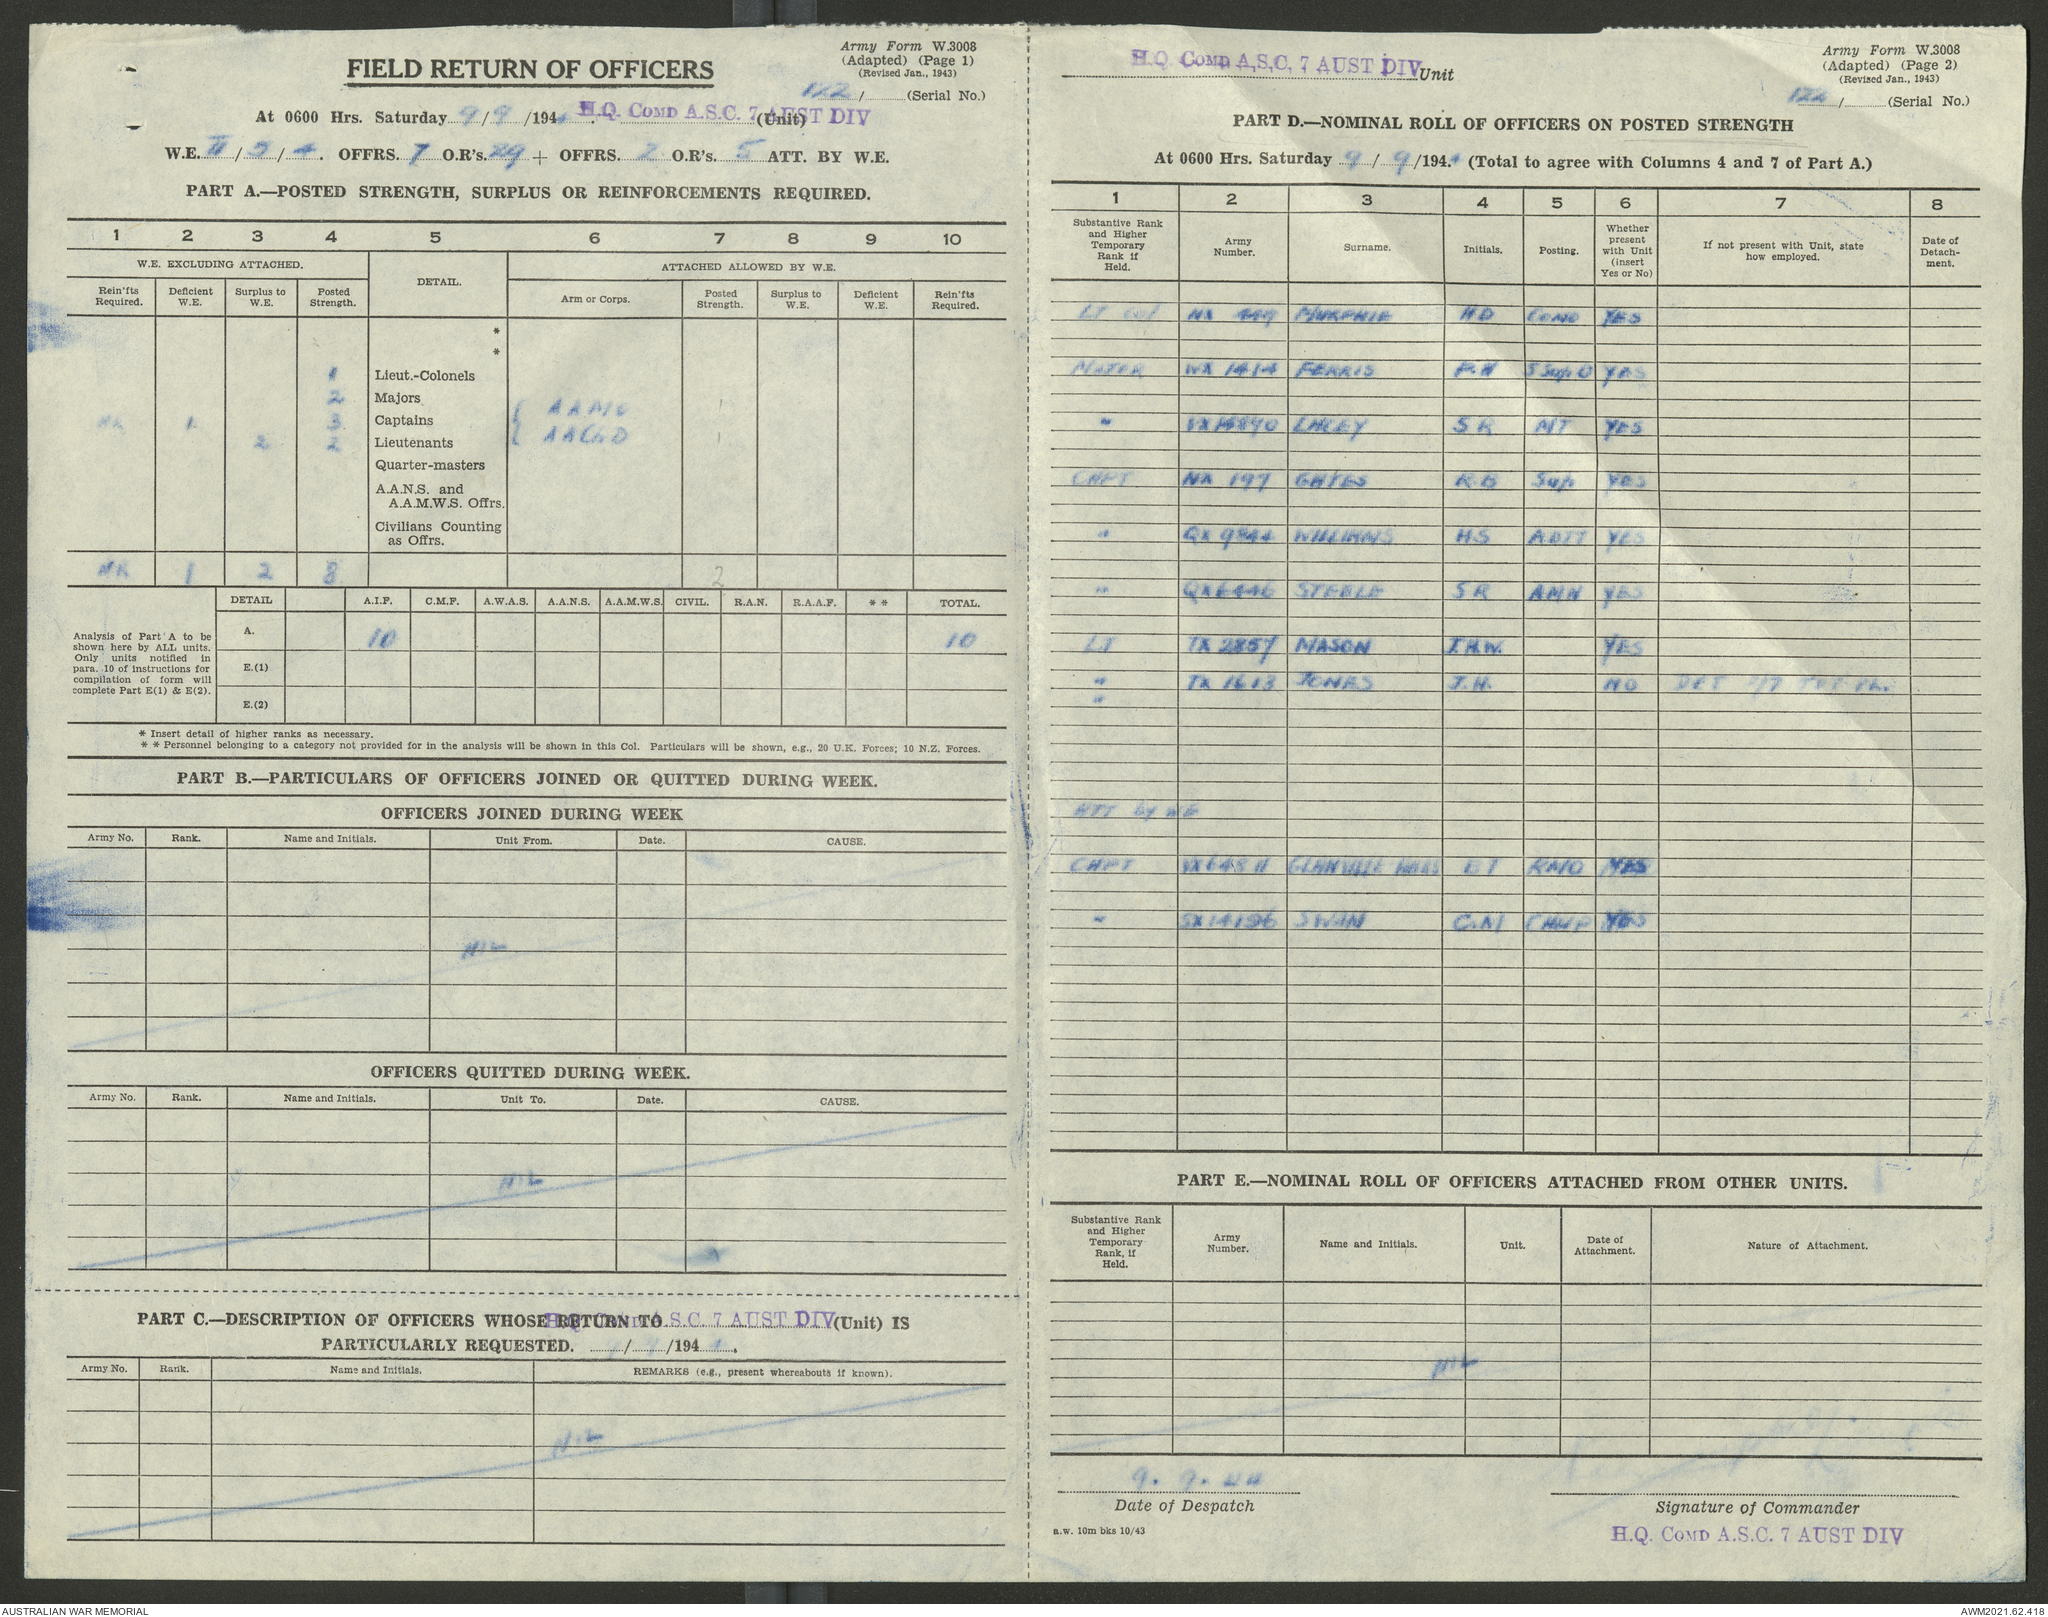 Army Form W.3008
(Adapted) (Page 1)
(Revised Jan., 1943)
122/ (Serial No.)
FIELD RETURN OF OFFICERS
At 0600 Hrs. Saturday 9/9/194 H.Q. COMD A.S.C. 7 AUST DIV (Unit)
W.E. II/5/4. OFFRS. 7 O.R's. 29 + OFFRS. 2 O.R's. 5 ATT. BY W.E.
PART A.—POSTED STRENGTH, SURPLUS OR REINFORCEMENTS REQUIRED.
1 2 3 4 5 6 7 8 9 10
W.E. EXCLUDING ATTACHED. DETAIL. ATTACHED ALLOWED BY W.E.
Rein'fts Required. Deficient W.E. Surplus to W.E. Posted Strength. Arm or Corps. Posted Strength. Surplus to W.E. Deficient W.E. Rein'fts Required.
*
*
1 Lieut.-Colonels
2 Majors
AAMC 1
NR 1 3 Captains
2 2 Lieutenants AACHD 1
Quarter-masters
A.A.N.S. and
A.A.M.W.S. Offrs.
Civilians Counting
as Offrs.
NR 1 2 8 2
DETAIL A.I.F. C.M.F. A.W.A.S. A.A.N.S. A.A.M.W.S. CIVIL. R.A.N. R.A.A.F. * * TOTAL.
Analysis of Part A to be
shown here by ALL units.
Only units notified in
para. 10 of instructions for
compilation of form will
complete Part E(1) & E(2).
A. 10 10
E.(1)
E.(2)
* Insert detail of higher ranks as necessary.
* * Personnel belonging to a category not provided for in the analysis will be shown in this Col. Particulars will be shown, e.g., 20 U.K. Forces; 10 N.Z. Forces.
PART B.—PARTICULARS OF OFFICERS JOINED OR QUITTED DURING WEEK.
OFFICERS JOINED DURING WEEK
Army No. Rank. Name and Initials. Unit From. Date. CAUSE.
NIL
OFFICERS QUITTED DURING WEEK.
Army No. Rank. Name and Initials. Unit To. Date. CAUSE.
NIL
PART C.—DESCRIPTION OF OFFICERS WHOSE RETURN TO H.Q. COMD A.S.C. 7 AUST DIV (Unit) IS
PARTICULARLY REQUESTED. / /194 .
Army No. Rank. Name and Initials. REMARKS (e.g., present whereabouts if known).
NIL
Army Form W.3008
(Adapted) (Page 2)
(Revised Jan., 1943)
122/ (Serial No.)
H.Q. COMD A.S.C. 7 AUST DIV Unit
PART D.—NOMINAL ROLL OF OFFICERS ON POSTED STRENGTH
At 0600 Hrs. Saturday 9/9/194. (Total to agree with Columns 4 and 7 of Part A.)
1 2 3 4 5 6 7 8
Substantive Rank and Higher Temporary Rank if Held. Army Number. Surname. Initials. Posting. Whether present with Unit (insert Yes or No) If not present with Unit, state how employed. Date of Detach- ment.
LT Col NX MURPHIE HD COMD YES
MAJOR WX 1414 FERRIS P.H SSupO YES
" SR MT YES
CAPT NX 197 GATES R.B Sup YES
" WILLIAMS HS ADJT YES
" STEELE SR AMN YES
LT TX 2857 MASON J.H.W. YES
" TX 1613 JONES J.H. NO DET
"
ATT by WE
CAPT GLANVILLE ET RMO YES
" SX14196 SWAN C.N CHAP YES
PART E.—NOMINAL ROLL OF OFFICERS ATTACHED FROM OTHER UNITS.
Substantive Rank and Higher Temporary Rank, if Held. Army Number. Name and Initials. Unit. Date of Attachment. Nature of Attachment.
NIL
9. 9. 44
Date of Despatch Signature of Commander
a.w. 10m bks 10/43
H.Q. COMD A.S.C. 7 AUST DIV
AUSTRALIAN WAR MEMORIAL AWM2021.62.418